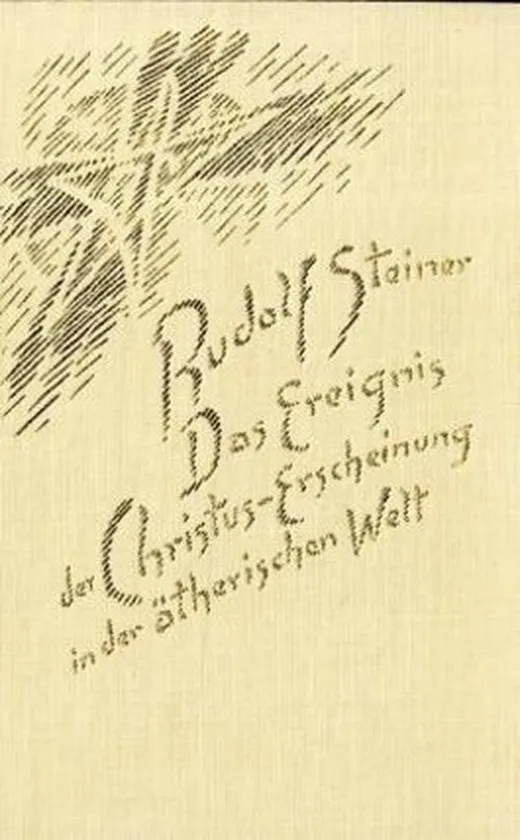 Rudolf Steiner
Das Ereignis
der Christus-Erscheinung
in der ätherischen Welt